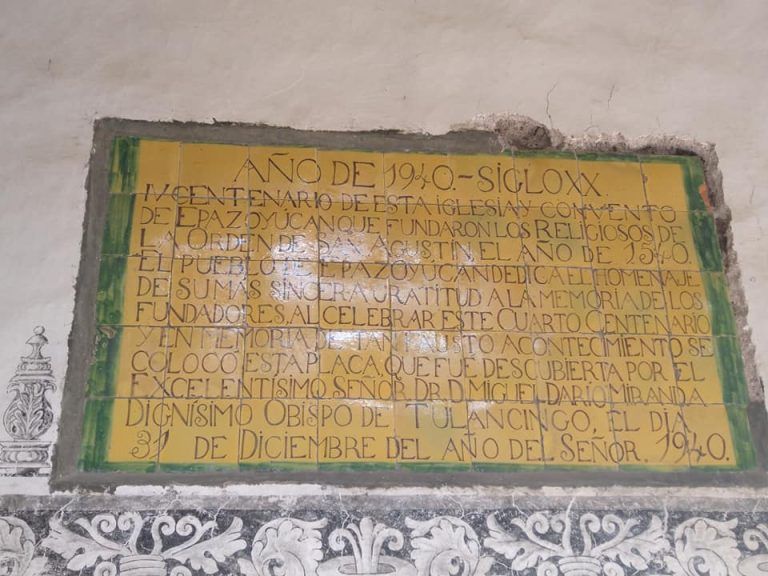 AÑO DE 1940.-SIGLO XX.
IV CENTENARIO DE ESTA IGLESIA Y CONVENTO
DE EPAZOYUCAN QUE FUNDARON LOS RELIGIOSOS DE
LA ORDEN DE SAN AGUSTIN, EL AÑO DE 1540.
EL PUEBLO DE EPAZOYUCAN DEDICA EL HOMENAJE
DE SU MÁS SINCERA GRATITUD A LA MEMORIA DE LOS
FUNDADORES, AL CELEBRAR ESTE CUARTO CENTENARIO
Y EN MEMORIA DE TAN FAUSTO ACONTECIMIENTO SE
COLOCÓ ESTA PLACA QUE FUE DESCUBIERTA POR EL
EXCELENTÍSIMO SEÑOR DR. D. MIGUEL DARÍO MIRANDA
DIGNÍSIMO OBISPO DE TULANCINGO, EL DIA
31 DE DICIEMBRE DEL AÑO DEL SEÑOR. 1940.